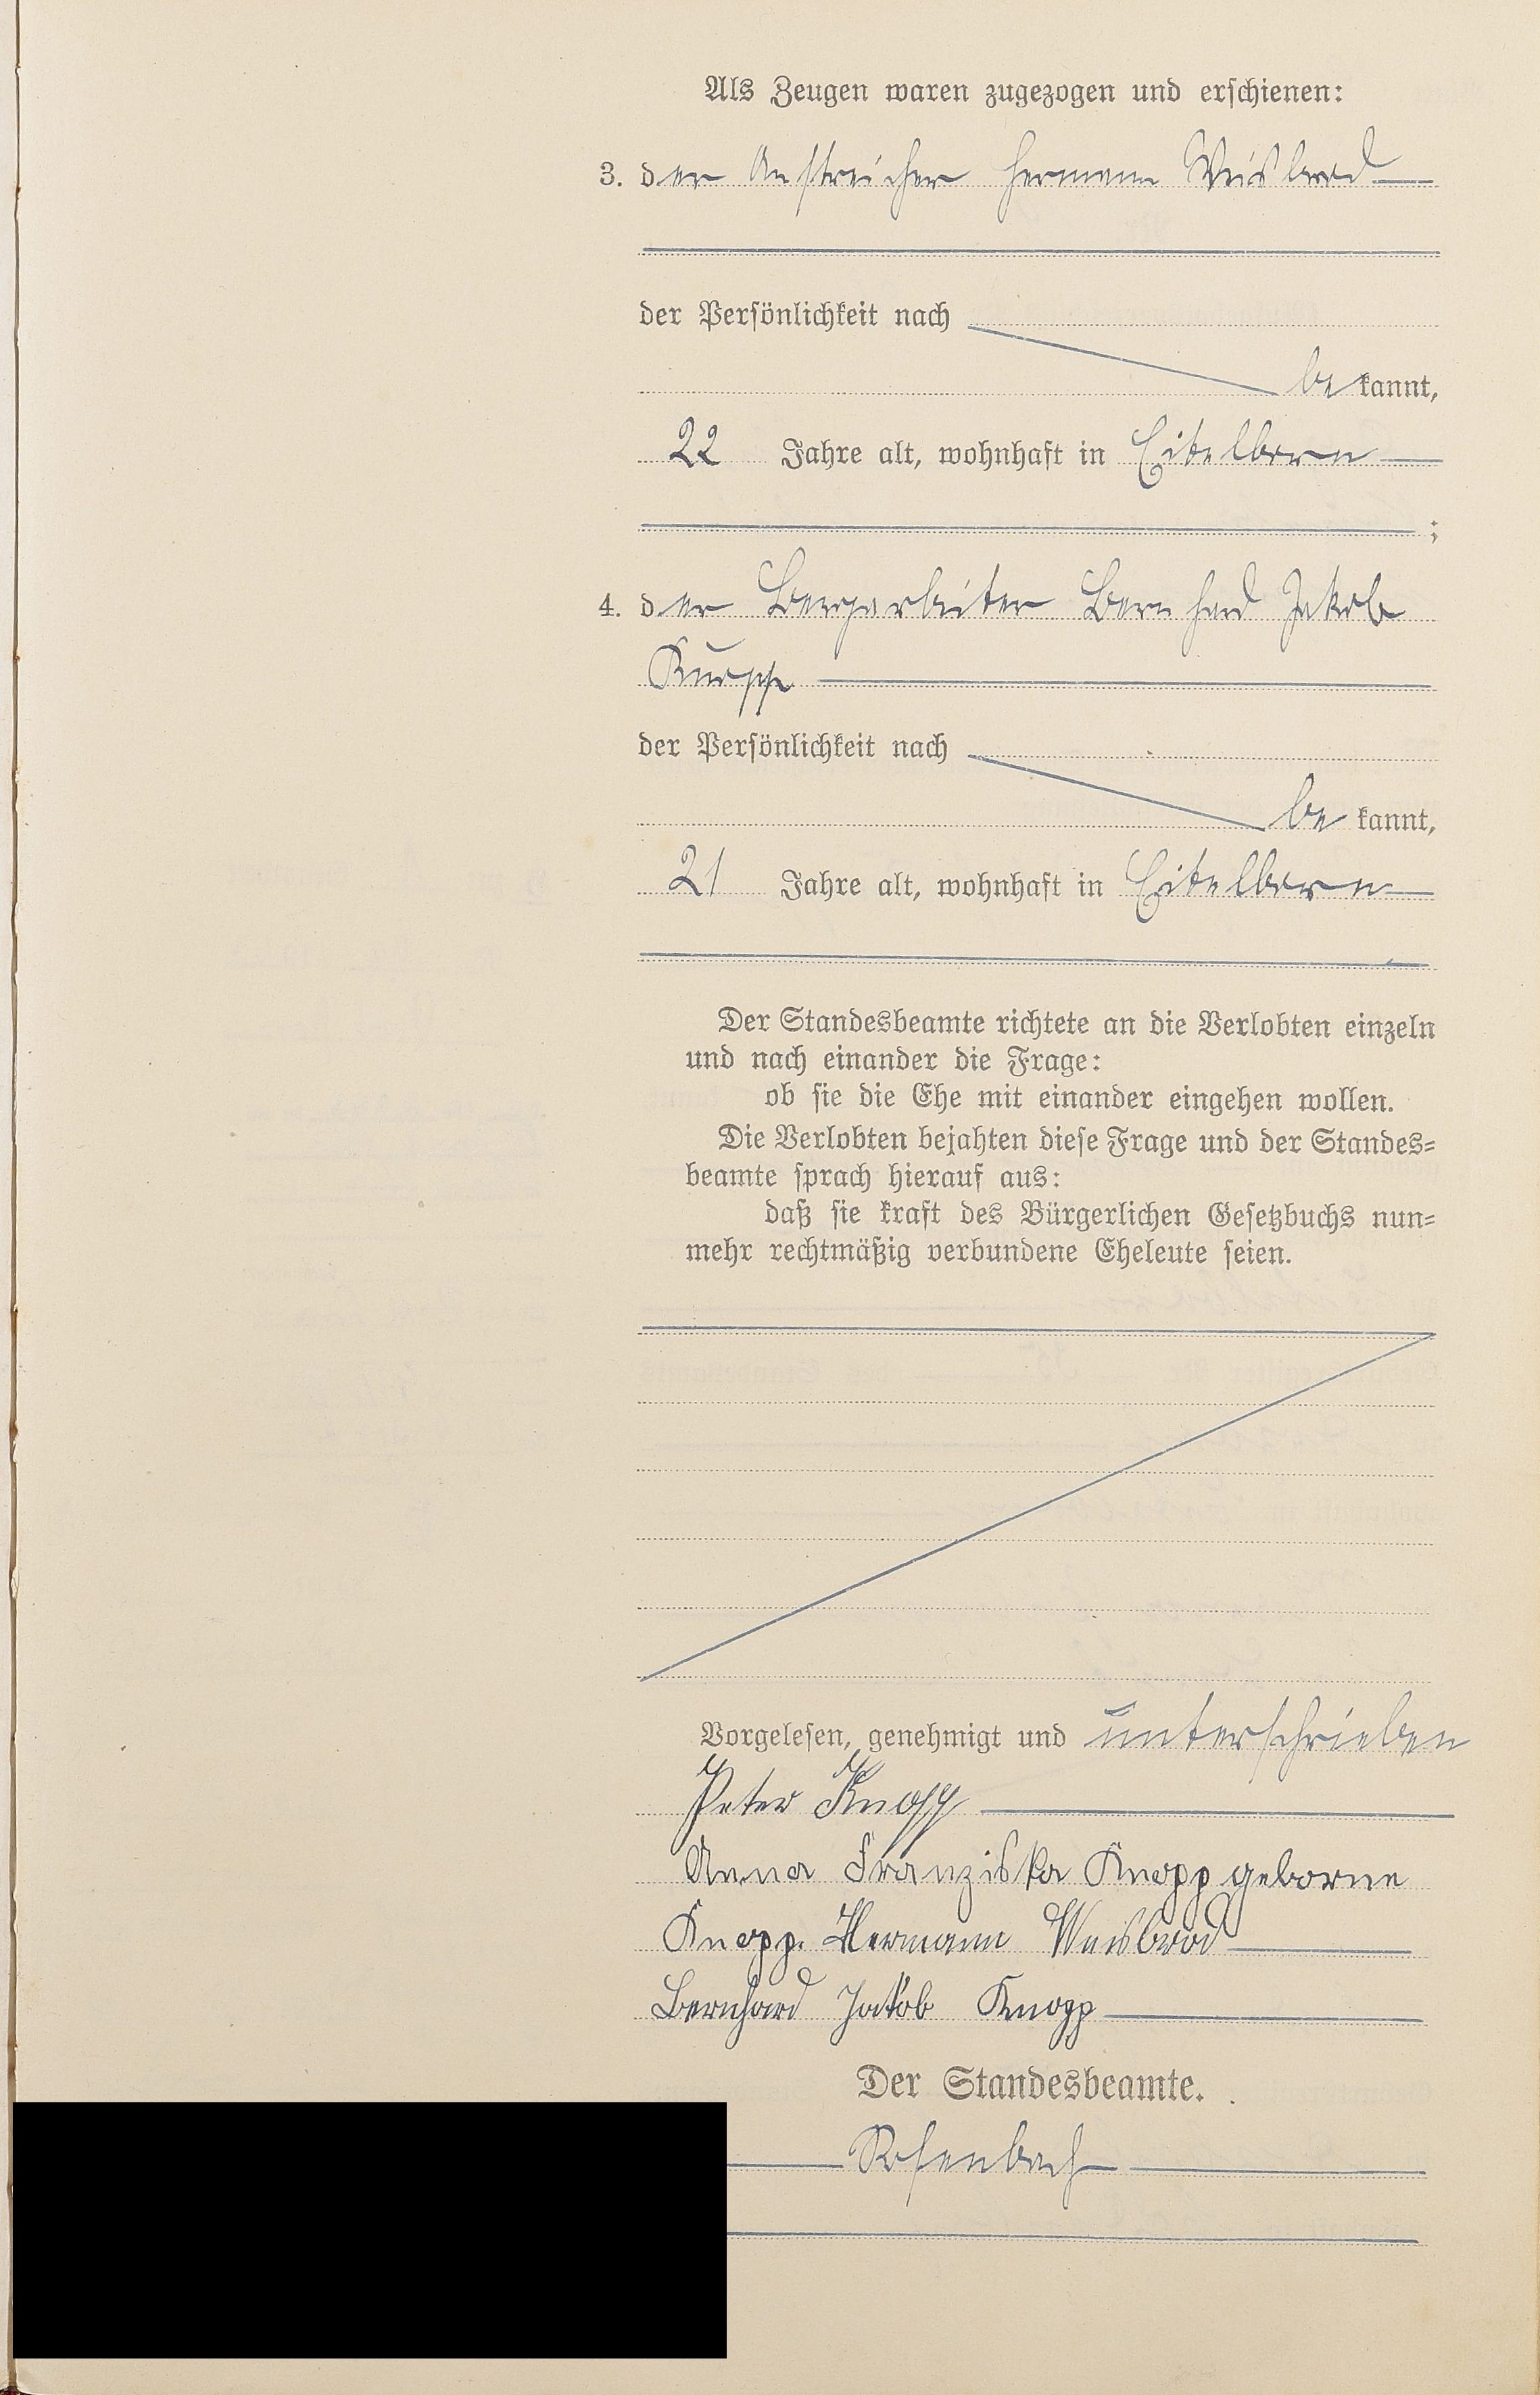 Als Zeugen waren zugezogen und erschienen:
3. der Anstreicher Hermann Weisbrod
der Persönlichkeit nach
bekannt,
22 Jahre alt, wohnhaft in Eitelborn
;
4. der Bergarbeiter Bernhard Jakob
Knopp
der Persönlichkeit nach
be kannt,
21 Jahre alt, wohnhaft in Eitelborn
Der Standesbeamte richtete an die Verlobten einzeln
und nach einander die Frage:
ob sie die Ehe mit einander eingehen wollen.
Die Verlobten bejahten diese Frage und der Standes=
beamte sprach hierauf aus:
daß sie kraft des Bürgerlichen Gesetzbuchs nun=
mehr rechtmäßig verbundene Eheleute seien.
Vorgelesen, genehmigt und unterschrieben
Peter Knopp
Anna Franziska Knopp geborne
Knopp. Hermann Weisbrod
Bernhard Jakob Knopp
Der Standesbeamte.
Rosenbach